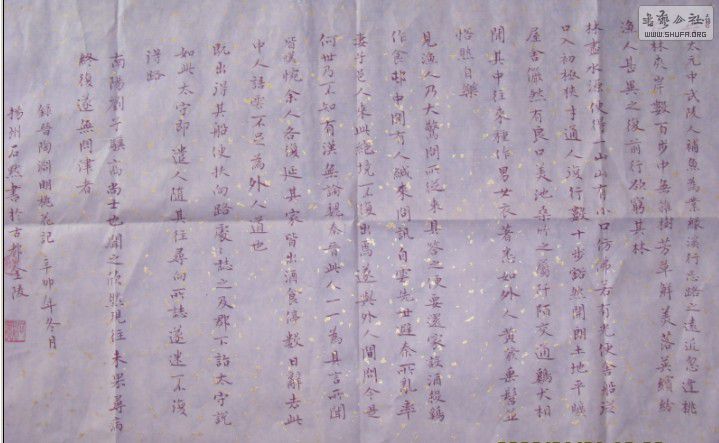 書藝公社
WWW.SHUFA.ORG
太元中武陵人捕魚為業緣溪行忘路之遠近忽逢桃
林夾岸數百步中無雜樹芳草鮮美落英繽紛
漁人甚異之復前行欲窮其林
林盡水源便得一山山有小口彷彿若有光便舍船從
口入初極狹才通人復行數十步豁然開朗土地平曠
屋舍儼然有良田美池桑竹之屬阡陌交通鷄犬相
聞其中往來種作男女衣著悉如外人黃髮垂髫並
怡然自樂
見漁人乃大驚問所從來具答之便要還家設酒殺鷄
作食邨中聞有人緘來問訊自雲先世避秦所亂率
妻子邑人來此絕境不復出焉遂與外人間問今是
何世乃不知有漢無論魏秦晉此人一一為具言所聞
皆嘆惋余人各復延其家皆出酒食停數日辭去此
中人語雲不足為外人道也
既出得其船便扶向路處〻誌之及郡下詣太守說
如此太守即遣人隨其往尋向所誌遂迷不復
得路
南陽劉子驥高尚士也聞之欣然規往未果尋病
終後遂無問津者
錄晉陶淵明桃花記 辛卯年冬月
揚州石然書於古都金陵